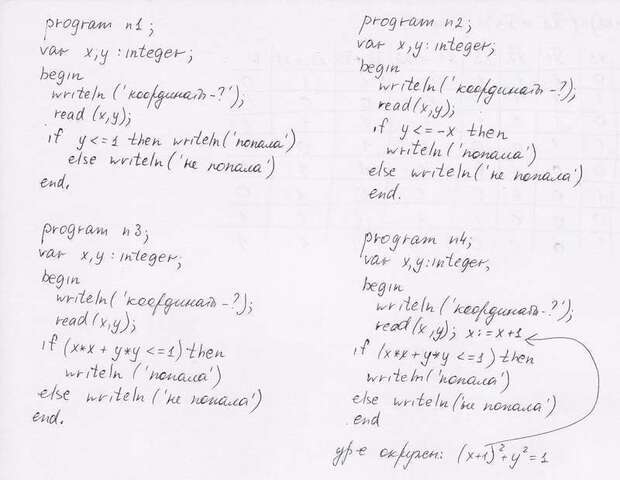 program n1;
var x,y : integer;
begin
writeln ('координаты-?');
read (x,y);
if y<=1 then writeln('попала')
else writeln('не попала')
end.
program n2;
var x,y: integer;
begin
writeln('координаты-?);
read(x,y);
if y<=-x then
writeln('попала')
else writeln('не попала')
end.
program n3;
var x,y : integer;
begin
writeln('координаты-?);
read(x,y);
if (x*x + y*y <=1) then
writeln ('попала')
else writeln ('не попала')
end.
program n4;
var x,y:integer;
begin
writeln('координаты-?');
read(x,y); x:=x+1
if (x*x+y*y <=1) then
writeln('попала')
else writeln('не попала')
end
ур-е окружн: (x+1)²+y²=1